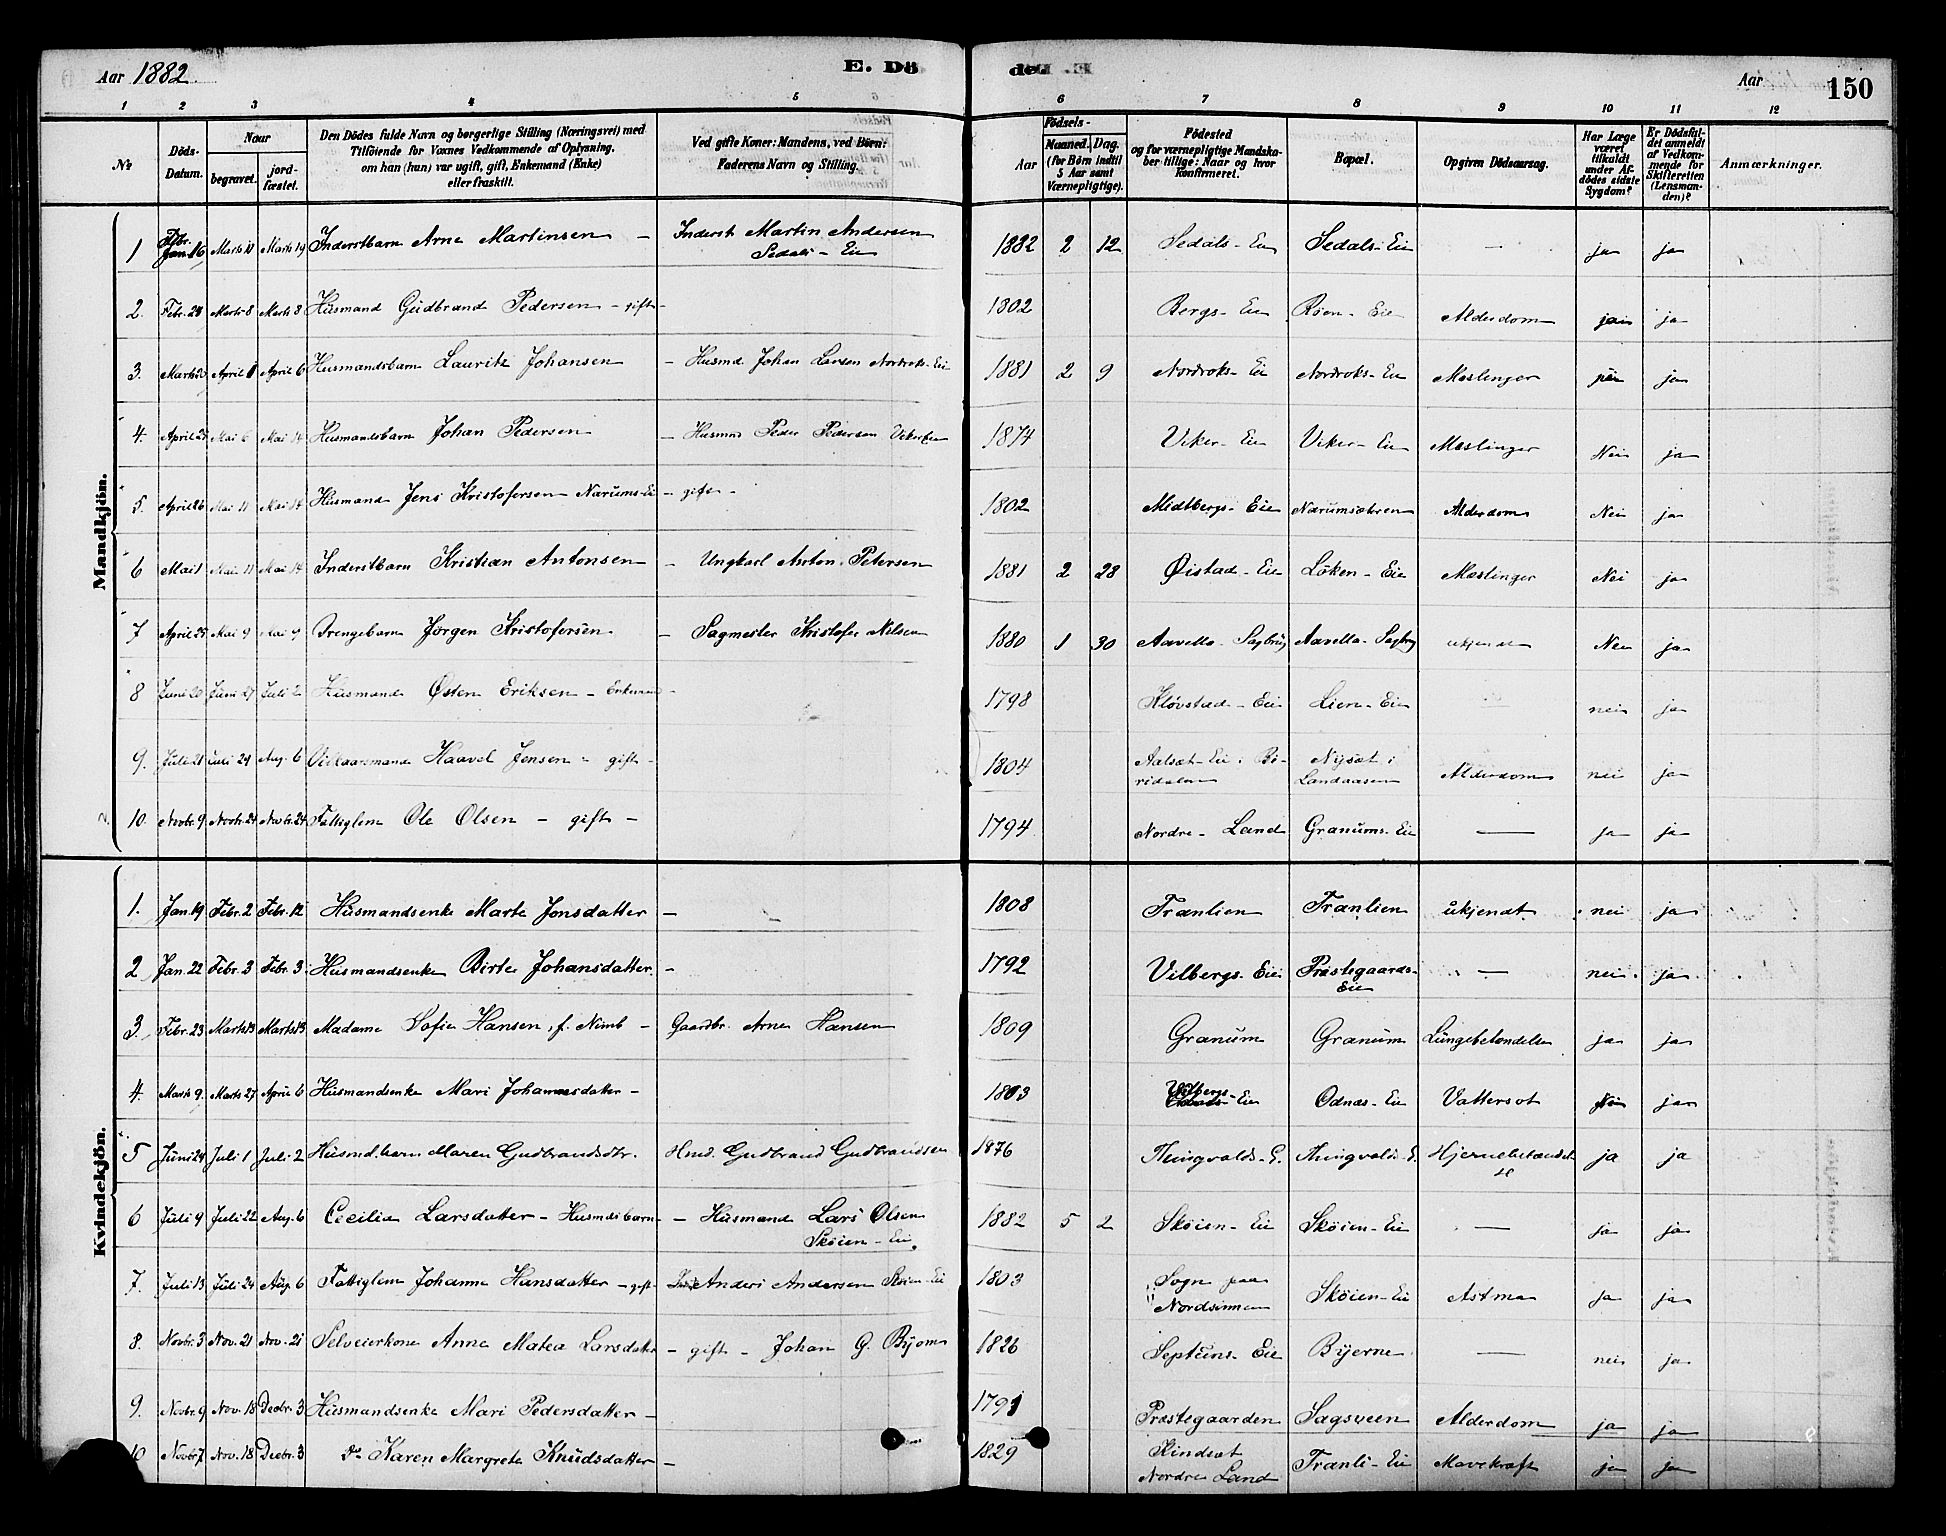 Aar 1882
E. Dö
de
Aar
150
1 2 3 4 5 6 7 8 9 10 11 12
No
Döds-
Datum.
Naar
begravet.
jord-
fæstet.
Den Dödes fulde Navn og borgerlige Stilling (Næringsvei) med
Tilföiende for Voxnes Vedkommende af Oplysning.
om han (hun) var ugift, gift, Enkemand (Enke)
eller fraskilt.
Ved gifte Koner: Mandens, ved Börn:
Faderens Navn og Stilling.
Födsels-
Aar
Maaned. Dag.
(for Börn indtil
5 Aar samt
Værnepligtige).
Födested
og for værnepligtige Mandska-
ber tillige: Naar og hvor
konfirmeret.
Bopæl.
Opgiven Dödsaarsag.
Har Læge
været
tilkaldt
under Af-
dödes sidste
Sygdom?
Er Dödsfal-
det anmeldt
af Vedkom-
mende for
Skifteretten
(Lensman-
den)?
Anmærkninger.
Mandkjön.
1 Febr. 16 Marts 11 Marts 19 Inderstbarn Arne Martinsen – Inderst Martin Andersen Sedals-Eie 1882 2 12 Sedals-Eie Sedals-Eie — ja ja
2. Febr. 28 Marts 8 Marts 8 Husmand Gudbrand Pedersen – gift – 1802 Bergs-Eie Röen-Eie Alderdom ja
3. Marts 20 April 1 April 6 Husmandsbarn Lauritz Johansen – Husmd Johan Larsen Nordroks-Eie 1881 2 9 Nordroks-Eie Nordroks-Eie Meslinger ja
4. April 25 Mai 6 Mai 14 Husmandsbarn Johan Pedersen – Husmd Peder Pedersen Viker Eie 1874 Viker-Eie Viker-Eie Meslinger Nei ja
5. April 26 Mai 11 Mai 14 Husmand Jens Kristofersen Narums-Eie – gift – 1802 Midtbergs-Eie Narumsæteren Alderdom Nei ja
6 Mai 1 Mai 11 Mai 14 Inderstbarn Kristian Antonsen – Ungkarl Anton Petersen 1881 2 28 Øistad-Eie Löken-Eie Meslinger Nei ja
7 April 25 Mai 9 Mai 9 Drengebarn Jörgen Kristofersen – Sagmester Kristofer Nilsen 1880 1 30 Aavella Sagbrug Aavella Sagbrug ukjendt Nei ja
8 Juni 20 Juni 27 Juli 2 Husmand Østen Eriksen – Enkemand – 1798 Klövstad-Eie Lien-Eie — nei ja
9. Juli 21 Juli 29 Aug. 6 Vilkaarsmand Haavel Jensen – gift – 1804 Aalsæt-Eie i Bi-
ridalen Nysæt i
Landaasen Alderdom nei ja
10. Novbr. 9 Novbr. 24 Novbr. 24 Fattiglem Ole Olsen – gift – 1794 Nordre-Land Granums-Eie — ja ja
Kvindekjön.
1. Jan. 19 Febr. 2 Febr. 12 Husmandsenke Marte Jonsdatter – 1808 Trænlien Trænlien ukjendt nei ja
2 Jan. 22 Febr. 3 Febr. 3 Husmandsenke Birte Johansdatter – 1792 Vilbergs-Eie Præstegaards-
Eie — nei ja
3. Febr. 23 Marts 13 Marts 13 Madame Sofie Hansen, f. Nimb – Gaardbr. Arne Hansen 1809 Granum Granum Lungebetændelse ja ja
4. Marts 9. Marts 27 April 6 Husmandsenke Mari Johannesdatter – 1803 Vilbergs-Eie Odnæs-Eie Vattersot Nei ja
5 Juni 24 Juli 1 Juli 2 Husmd.barn Maren Gudbrandsdtr. Hmd. Gudbrand Gudbrandsen 1876 Thingvolds-E. Thingvolds-E. Hjernebetændel-
se ja ja
6 Juli 9 Juli 22 Aug. 6 Cecilia Larsdatter – Husmdsbarn – Husmand Lars Olsen
Sköien-Eie 1882 5 2 Sköien-Eie Sköien-Eie — ja ja
7. Juli 13 Juli 24 Aug. 6 Fattiglem Johanne Hansdatter – gift – Anders Andersen Sköien-Eie 1803 Sogn paa
Nordsinnen Sköien-Eie Astma ja ja
8. Novbr. 3 Nov. 21 Nov. 21 Selveierkone Anne Matea Larsdatter – gift – Johan G. Byom 1826 Septuns-Eie Byerne — nei ja
9. Novbr. 9 Nov. 18 Decbr. 3 Husmandsenke Mari Pedersdatter – 1791 Præstegaarden Sagsveen Alderdom ja ja
10 Novbr 7 Nov. 18 Decbr. 3 Do Karen Margrete Knudsdatter – 1829 Kindsæt
Nordre Land Trænli-Eie Mavekræft ja ja